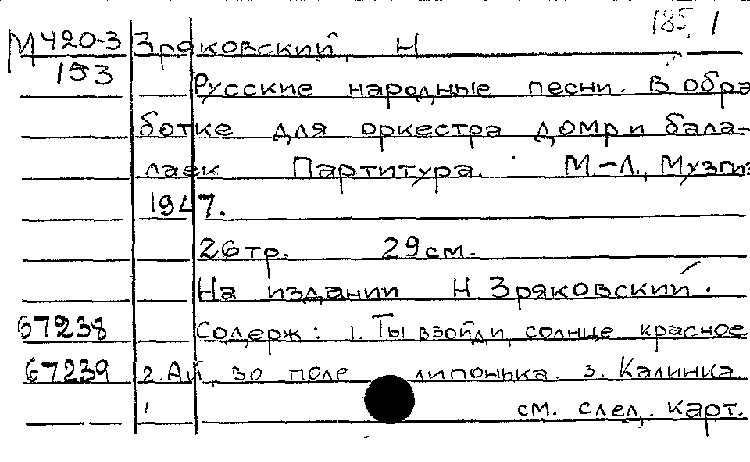 185, 1
М 420-3 Зряковский, Н
153
Русские народные песни. В обра
ботке для оркестра домр и бала-
лаек Партитура. М-Л., Музгиз
1947.
26 тр. 29 см.
На издании Н. Зряковский.
67238 Содерж: 1. Ты взойди, солнце красное
67239 2. Ай, во поле липонька. 3. Калинка.
см. след. карт.